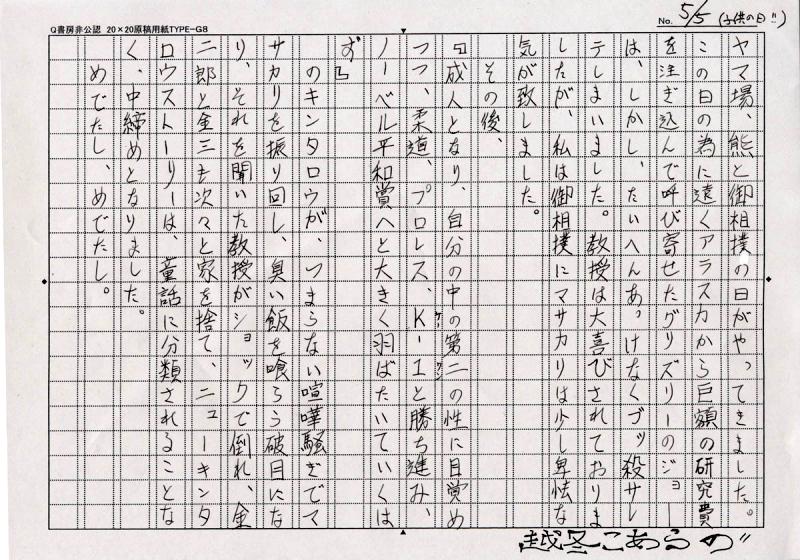 Q書房非公認 20×20原稿用紙TYPE-G8
No. 5/5 (子供の日!!)
ヤマ場、熊と御相撲の日がやってきました。
この日の為に遠くアラスカから巨額の研究費
を注ぎ込んで呼び寄せたグリズリーのジョー
は、しかし、たいへんあっけなくブッ殺サレ
テしまいました。教授は大喜びされておりま
したが、私は御相撲にマサカリは少し卑怯な
気が致しました。
その後、
『成人となり、自分の中の第二の性に目覚め
つつ、柔道、プロレス、K-1と勝ち進み、
ケー ワン
ノーベル平和賞へと大きく羽ばたいていくは
ず』
のキンタロウが、つまらない喧嘩騒ぎでマ
サカリを振り回し、臭い飯を喰らう破目にな
り、それを聞いた教授がショックで倒れ、金
二郎と金三も次々と家を捨て、ニューキンタ
ロウストーリーは、童話に分類されることな
く、中締めとなりました。
めでたし、めでたし。
越冬こあらの"